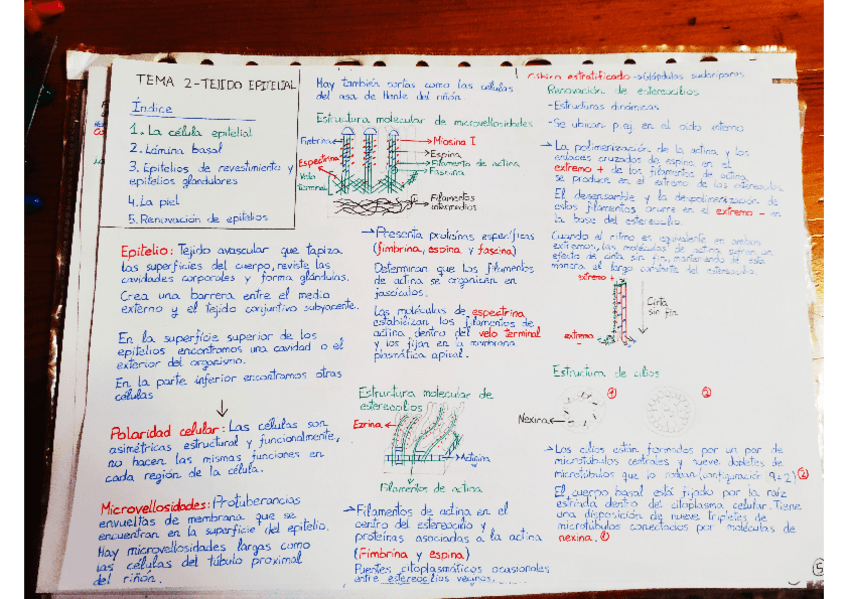 TEMA 2-TEJIDO EPITELIAL
Índice
1. La célula epitelial
2. Lámina basal
3. Epitelios de revestimiento y
epitelios glandulares
4. La piel
5. Renovación de epitelios
Epitelio: Tejido avascular que tapiza
las superficies del cuerpo, reviste las
cavidades corporales y forma glándulas.
Crea una barrera entre el medio
externo y el tejido conjuntivo subyacente.
En la superficie superior de los
epitelios encontramos una cavidad o el
exterior del organismo.
En la parte inferior encontramos otras
células
Polaridad celular: Las células son
asimétricas estructural y funcionalmente,
no hacen las mismas funciones en
cada región de la célula.
Microvellosidades: Protuberancias
envueltas de membrana que se
encuentran en la superficie del epitelio.
Hay microvellosidades largas como
las células del túbulo proximal
del riñón.
Hay también cortas como las células
del asa de Henle del riñón
Estructura molecular de microvellosidades
Fimbrina
Espectrina
Velo
terminal
Miosina I
Espina
Filamento de actina
Fascina
Filamentos
intermedios
→Presenta proteínas específicas
(fimbrina, espina y fascina)
Determinan que los filamentos
de actina se organicen en
fascículos.
Las moléculas de espectrina
estabilizan los filamentos de
actina dentro del velo terminal
y los fijan en la membrana
plasmática apical.
Estructura molecular de
estereocilios
Ezrina
Actinina
Filamentos de actina
→Filamentos de actina en el
centro del estereocilio y
proteínas asociadas a la actina
(Fimbrina y espina)
Puentes citoplasmáticos ocasionales
entre estereocilios vecinos.
Cúbico estratificado → Glándulas sudoríparas
Renovación de estereocilios
-Estructuras dinámicas
-Se ubican p.ej en el oído interno
→ La polimerización de la actina y los
enlaces cruzados de espina en el
extremo + de los filamentos de actina
se produce en el extremo de los estereocilios
El desensamble y la despolimerización de
estos filamentos ocurre en el extremo - en
la base del estereocilio.
Cuando el ritmo es equivalente en ambos
extremos, las moléculas de actina sufren un
efecto de cinta sin fin, manteniendo de esta
manera el largo constante del estereocilio.
extremo +
Cinta
sin fin
extremo -
Estructura de cilios
1
2
Nexina
→ Los cilios están formados por un par de
microtúbulos centrales y nueve dobletes de
microtúbulos que lo rodean (configuración 9+2) 2
El cuerpo basal está fijado por la raíz
estriada dentro del citoplasma celular. Tiene
una disposición de nueve tripletes de
microtúbulos conectados por moléculas de
nexina. 1
5